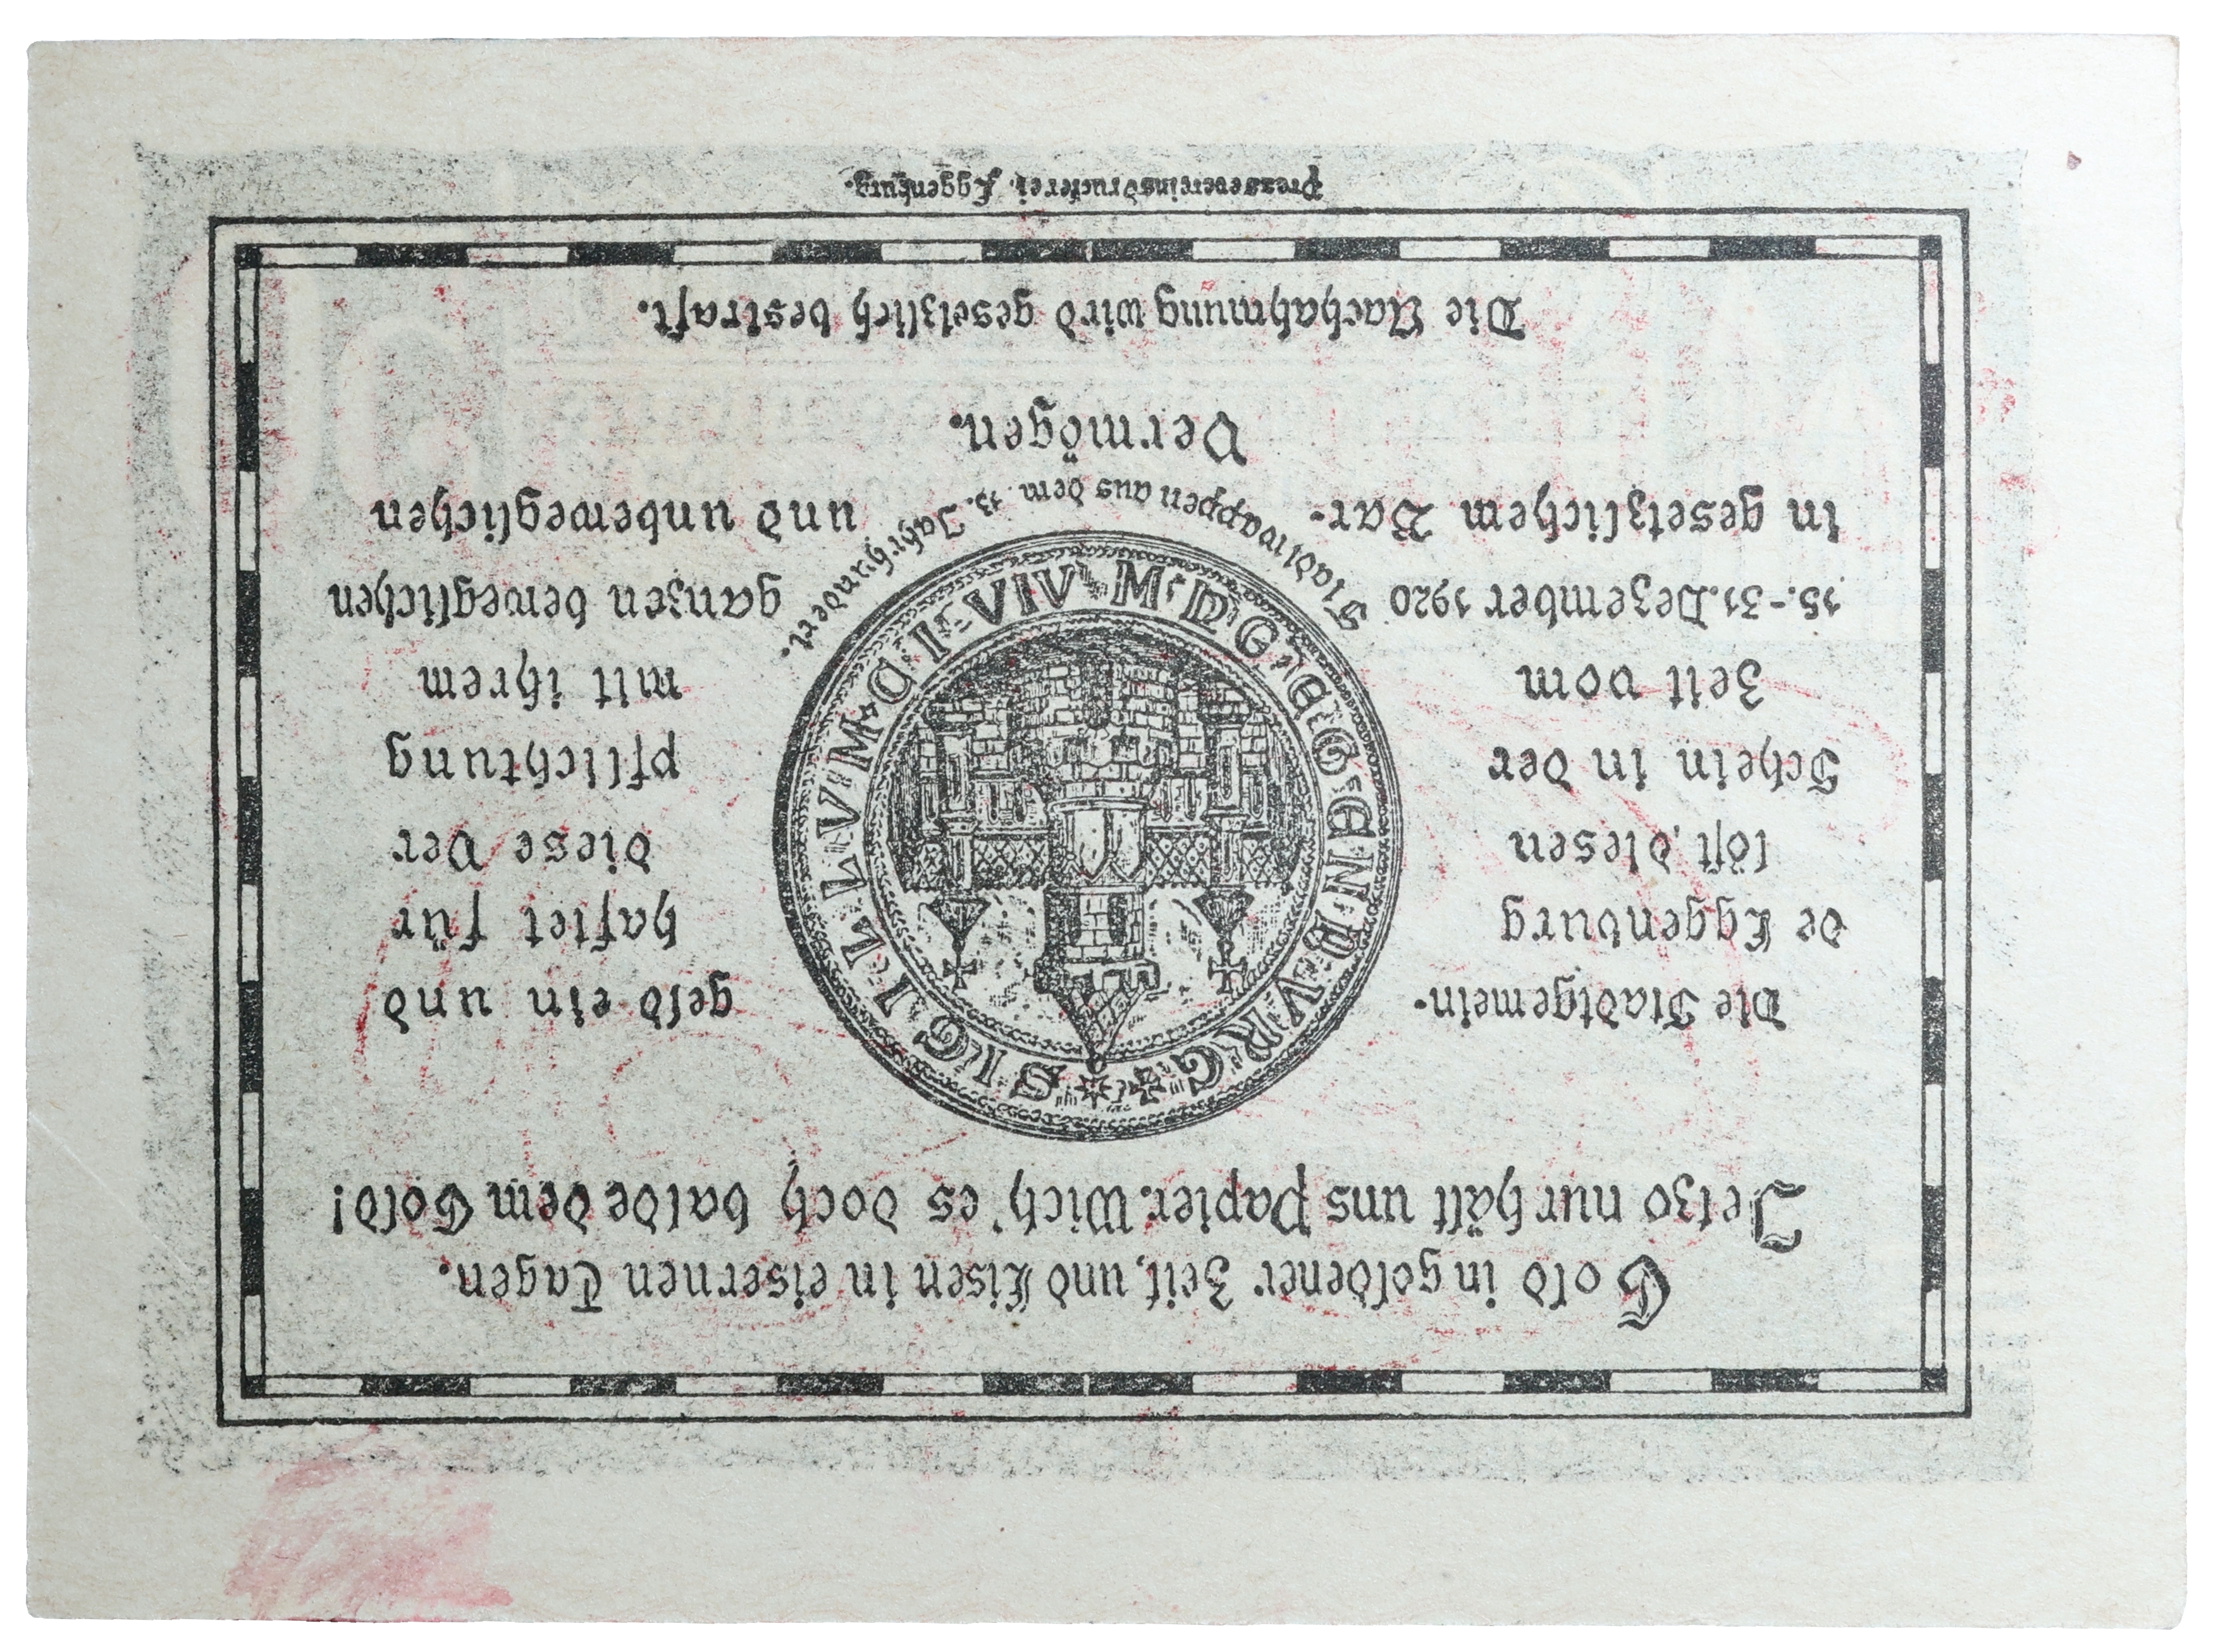 Gold in goldener Zeit, und Eisen in eisernen Tagen.
Jetzo nur hält uns Papier. Wich' es doch balde dem Gold!
Die Stadtgemein-
de Eggenburg
löst diesen
Schein in der
Zeit vom
15.-31. Dezember 1920
in gesetzlichem Bar-
SIGILLVM CIVIVM DE EGGENBVRG
Stadtwappen aus dem 13. Jahrhundert.
geld ein und
haftet für
diese Ver
pflichtung
mit ihrem
ganzen beweglichen
und unbeweglichen
Vermögen.
Die Nachahmung wird gesetzlich bestraft.
Pressevereinsdruckerei Eggenburg.